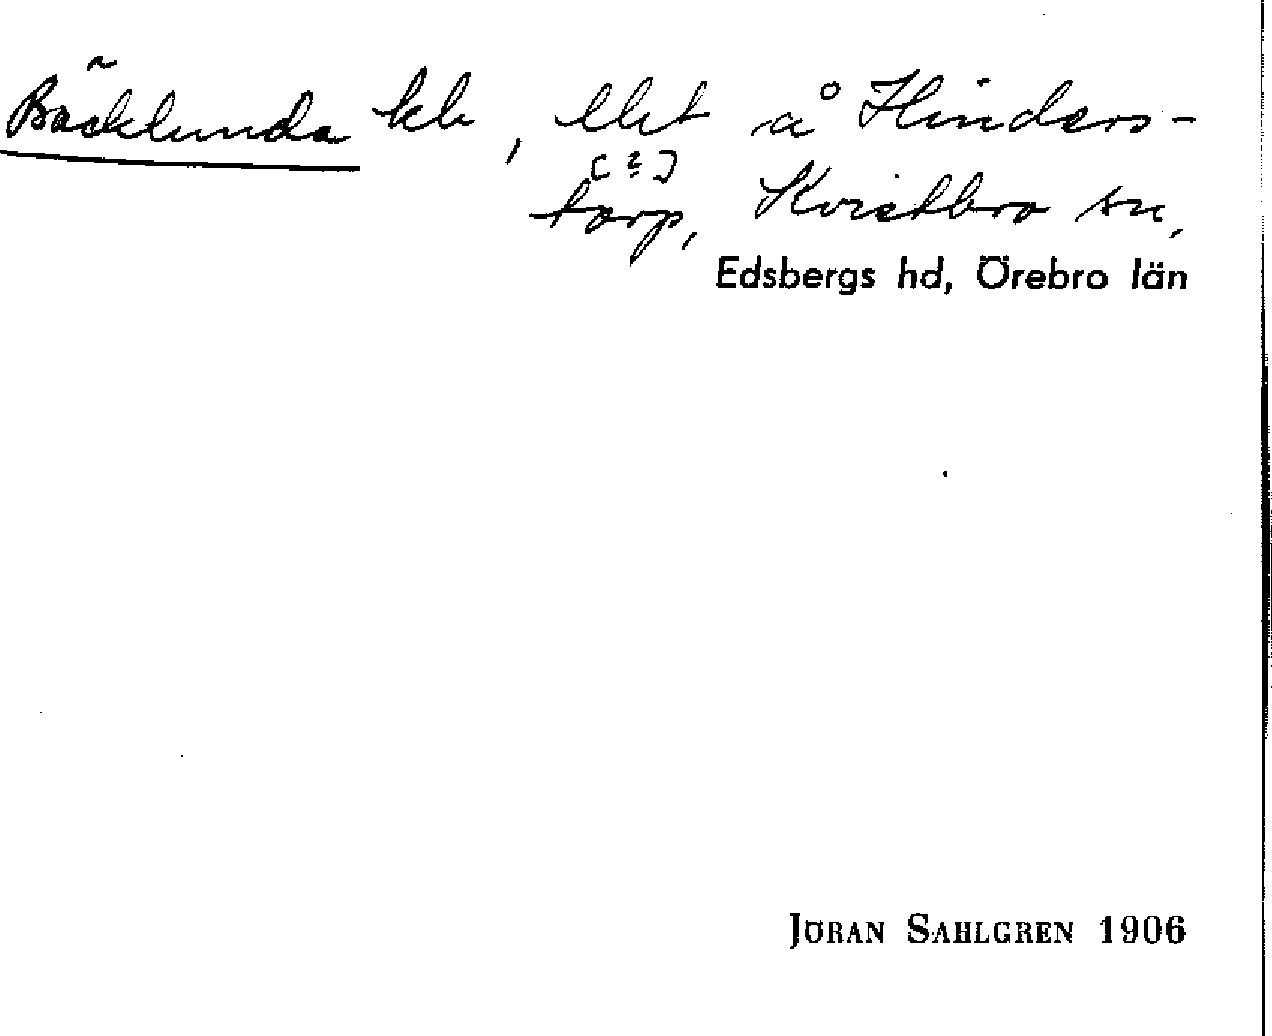 Bäcklunda kb, lht å Hinders-
[?]
torp, Kvistbro sn,
Edsbergs hd, Örebro län
JÖRAN SAHLGREN 1906